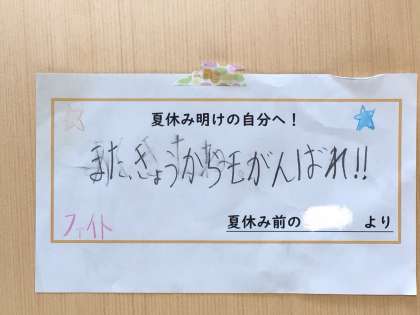 夏休み明けの自分へ！
また、きょうからもがんばれ!!
ファイト
夏休み前の　より